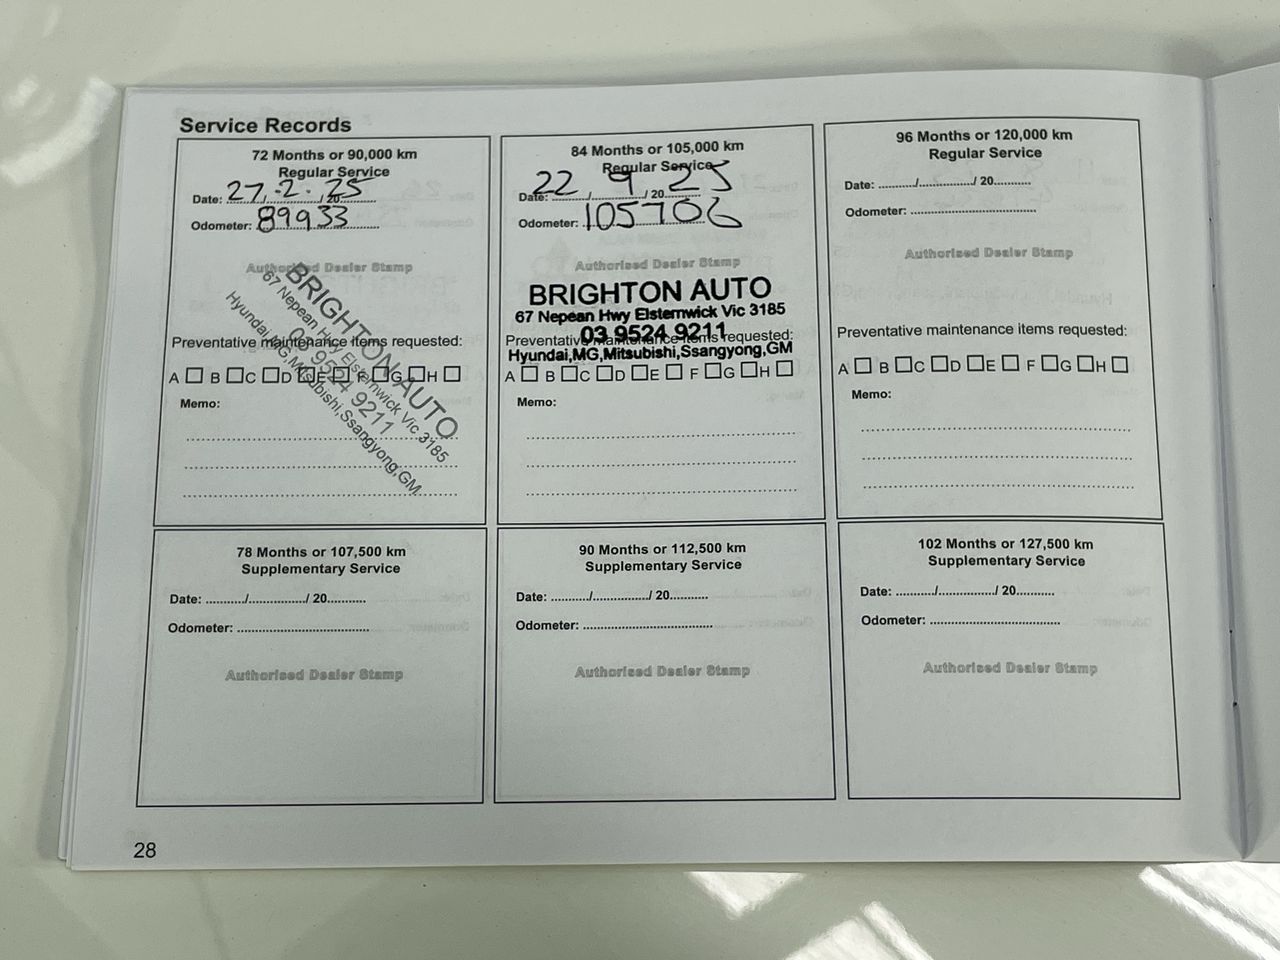 Service Records
72 Months or 90,000 km
Regular Service
Date: 27.2.25
Odometer: 89933
Authorised Dealer Stamp
BRIGHTON AUTO
67 Nepean Hwy Elsternwick Vic 3185
03 9524 9211
Hyundai,MG,Mitsubishi,Ssangyong,GM
Preventative maintenance items requested:
A B C D E F G H
Memo:
84 Months or 105,000 km
Regular Service
Date: 22 / 9 / 20 25
Odometer: 105706
Authorised Dealer Stamp
BRIGHTON AUTO
67 Nepean Hwy Elsternwick Vic 3185
03 9524 9211
Preventative maintenance items requested:
Hyundai,MG,Mitsubishi,Ssangyong,GM
A B C D E F G H
Memo:
96 Months or 120,000 km
Regular Service
Date: ........../................/ 20...........
Odometer: .....................................
Authorised Dealer Stamp
Preventative maintenance items requested:
A B C D E F G H
Memo:
78 Months or 107,500 km
Supplementary Service
Date: ........../................/ 20...........
Odometer: .....................................
Authorised Dealer Stamp
90 Months or 112,500 km
Supplementary Service
Date: ........../................/ 20...........
Odometer: .....................................
Authorised Dealer Stamp
102 Months or 127,500 km
Supplementary Service
Date: ........../................/ 20...........
Odometer: .....................................
Authorised Dealer Stamp
28